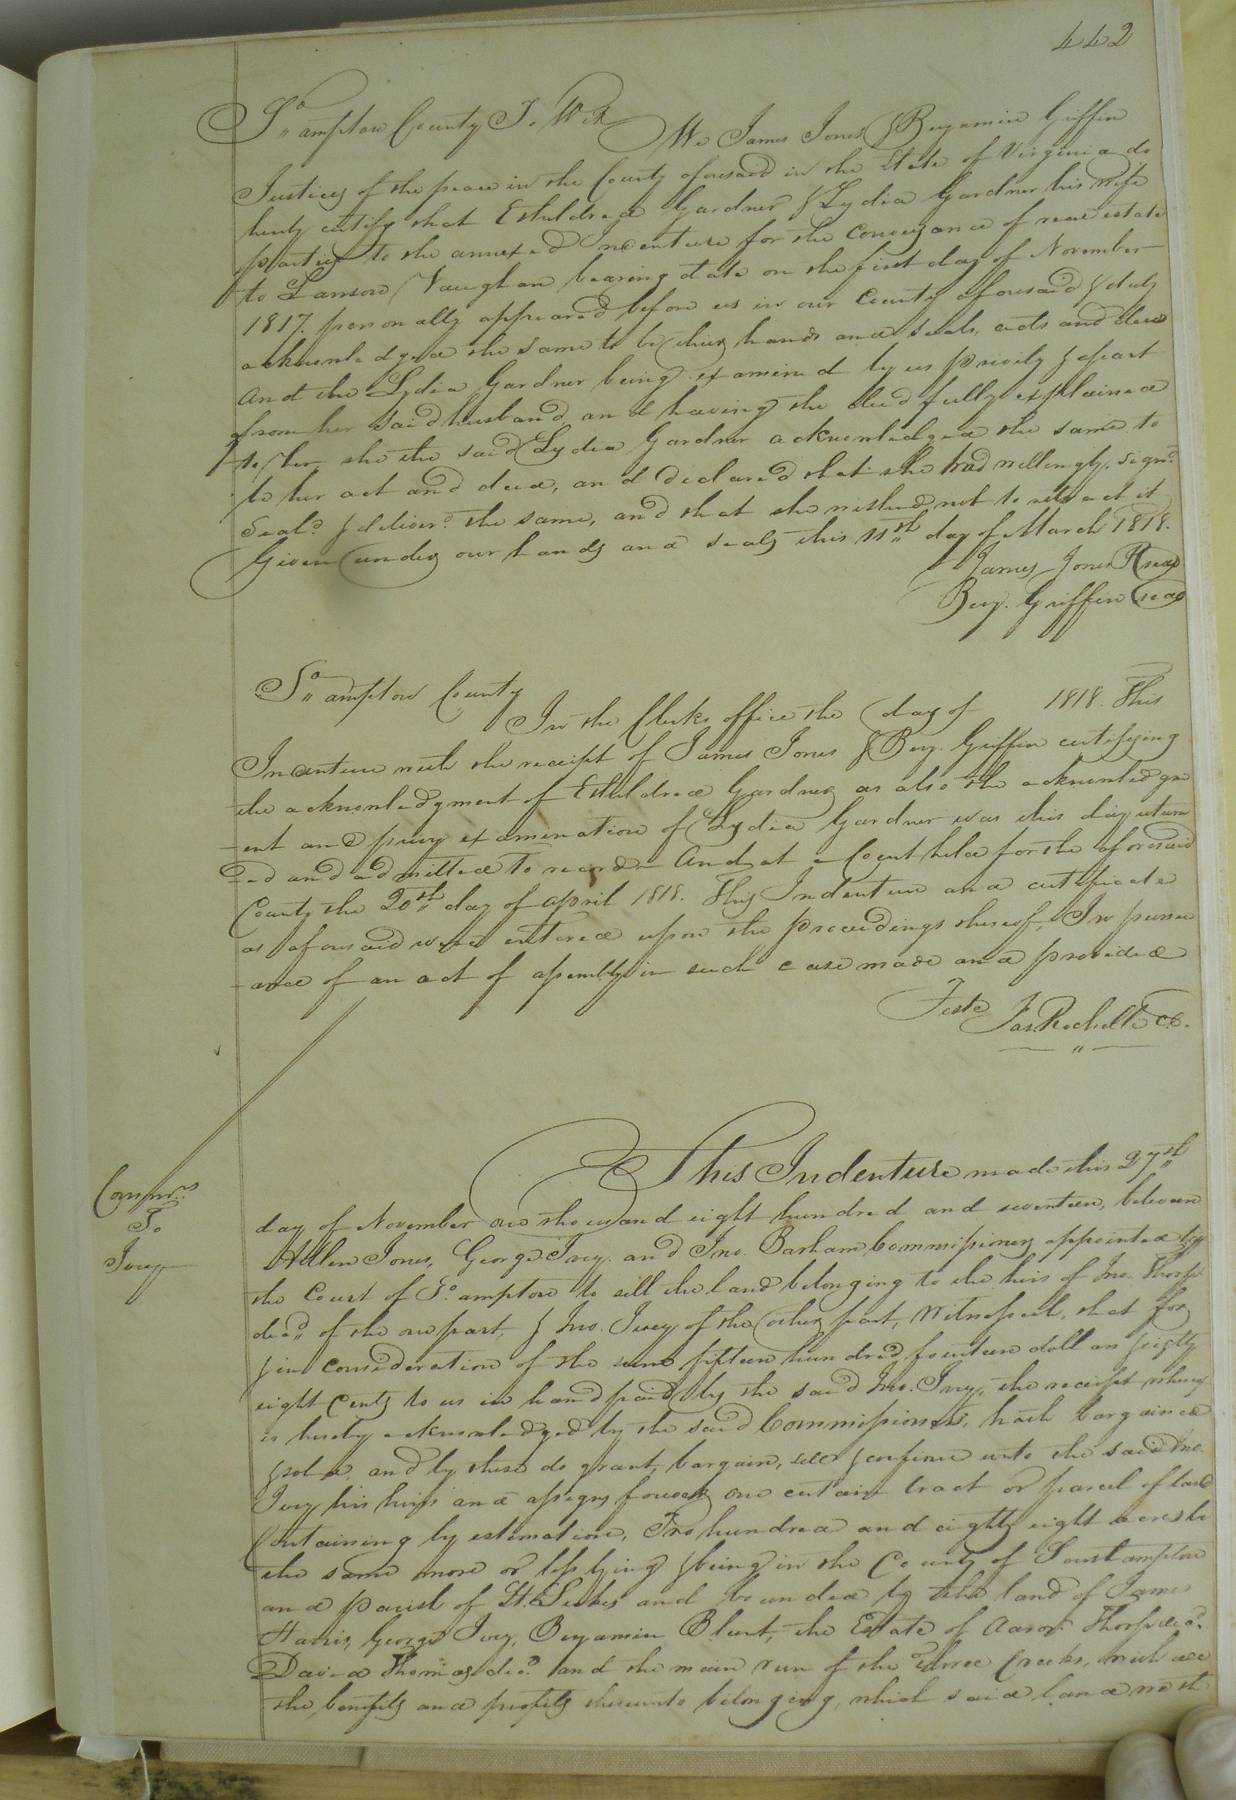 442
So. ampton County To Wit We James Jones & Benjamin Griffin
Justices of the peace in the County aforesaid in the State of Virginia do
hereby certify that Etheldred Gardner & Lydia Gardner his wife
parties to the annexed Indenture for the conveyance of real estate
to Vaughan bearing date on the first day of November
1817. personally appeared before us in our County aforesaid & duly
acknowledged the same to be their hands and seals, acts and deed
And the Lydia Gardner being examined by us privily & apart
from her said husband, and having the deed fully explained
to her she the said Lydia Gardner acknowledged the same to
to her act and deed, and declared that she had willingly, signd.
Seald. & deliverd. the same, and that she wished not to retract it
Given under our hands and seals this 11th day of March 1818.
James Jones (seal)
Benj. Griffin (seal)
So. ampton County
In the Clerks office the day of 1818. This
Indenture with the receipt of James Jones & Benj. Griffin certifying
the acknowledgment of Etheldred Gardner as also the acknowledgm
-ent and privy examination of Lydia Gardner was this day return
-ed and admitted to record And at a Court held for the aforesaid
County the 20th day of April 1818. This Indenture and certificate
as aforesaid were entered upon the proceedings thereof, In pursu
-ance of an act of assembly in such case made and provided
Teste Jas. Rochelle CC.
Commrs.
To
Ivey
This Indenture made this 27th
day of November one thousand eight hundred and seventeen, between
Allen Jones, George Ivey and Jno. Barham, Commissioners appointed by
the Court of So. ampton to sell the land belonging to the heirs of Jno. Thorp
decd. of the one part, & Jno. Ivey of the other part, Witnesseth, that for
& in consideration of the sum fifteen hundred fourteen dollars & eighty
eight Cents to us in hand paid by the said Jno. Ivey, the receipt whereof
is hereby acknowledged by the said Commissioners, hath bargained
& sold, and by these do grant, bargain, sell & confirm unto the said Jno.
Ivey his heirs and assigns forever one certain tract or parcel of land
Containing by estimation, Two hundred and eighty eight acres be
the same more or less lying & being in the County of Southampton
and parish of St. Lukes and bounded by the land of James
Harris, George Ivey, Benjamin Blunt, the Estate of Aaron Thorp decd.
David Thomas decd. and the main run of the Creeks, with all
the benefits and profits thereunto belonging, which said land